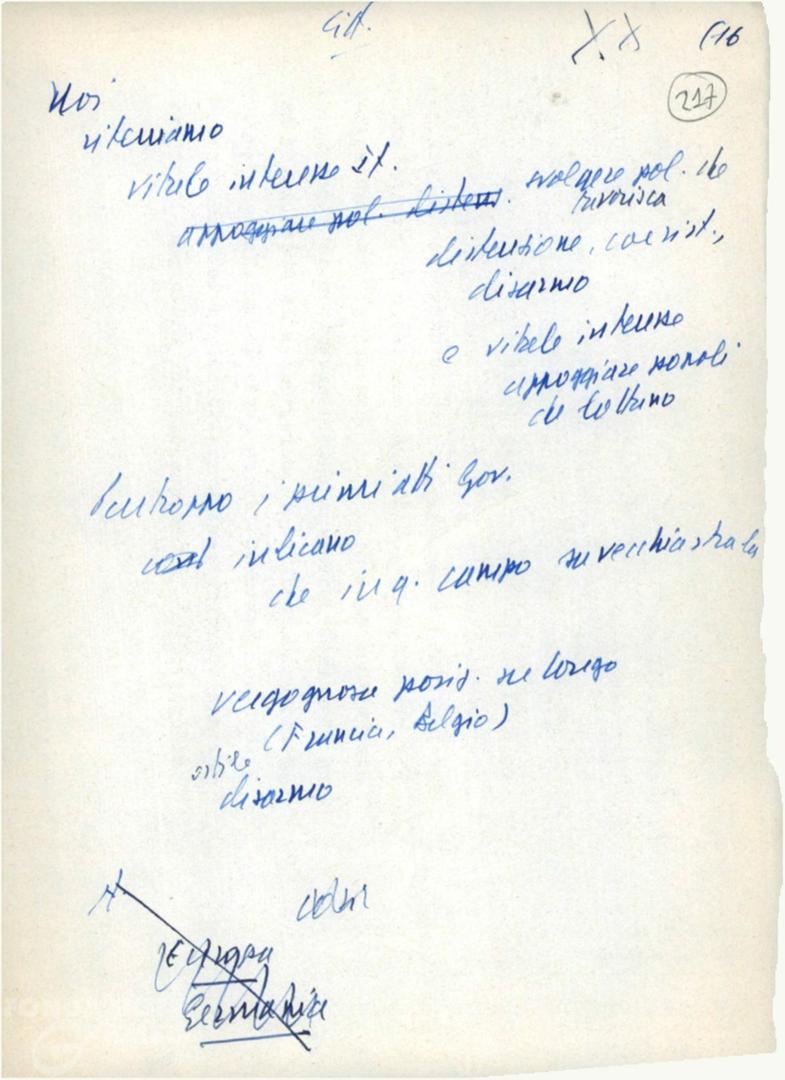 XX (16
217
Noi
riteniamo
vitale interesse it.
appoggiare pol. distens. svolgere pol. che
favorisca
distensione, coesist.,
disarmo
e vitale interesse
appoggiare popoli
che lottano
Purtroppo i primi atti Gov.
indicano
che in q. campo su vecchia strada
vergognosa posiz. su Congo
(Francia, Belgio)
ostile
disarmo
Europa
Germania